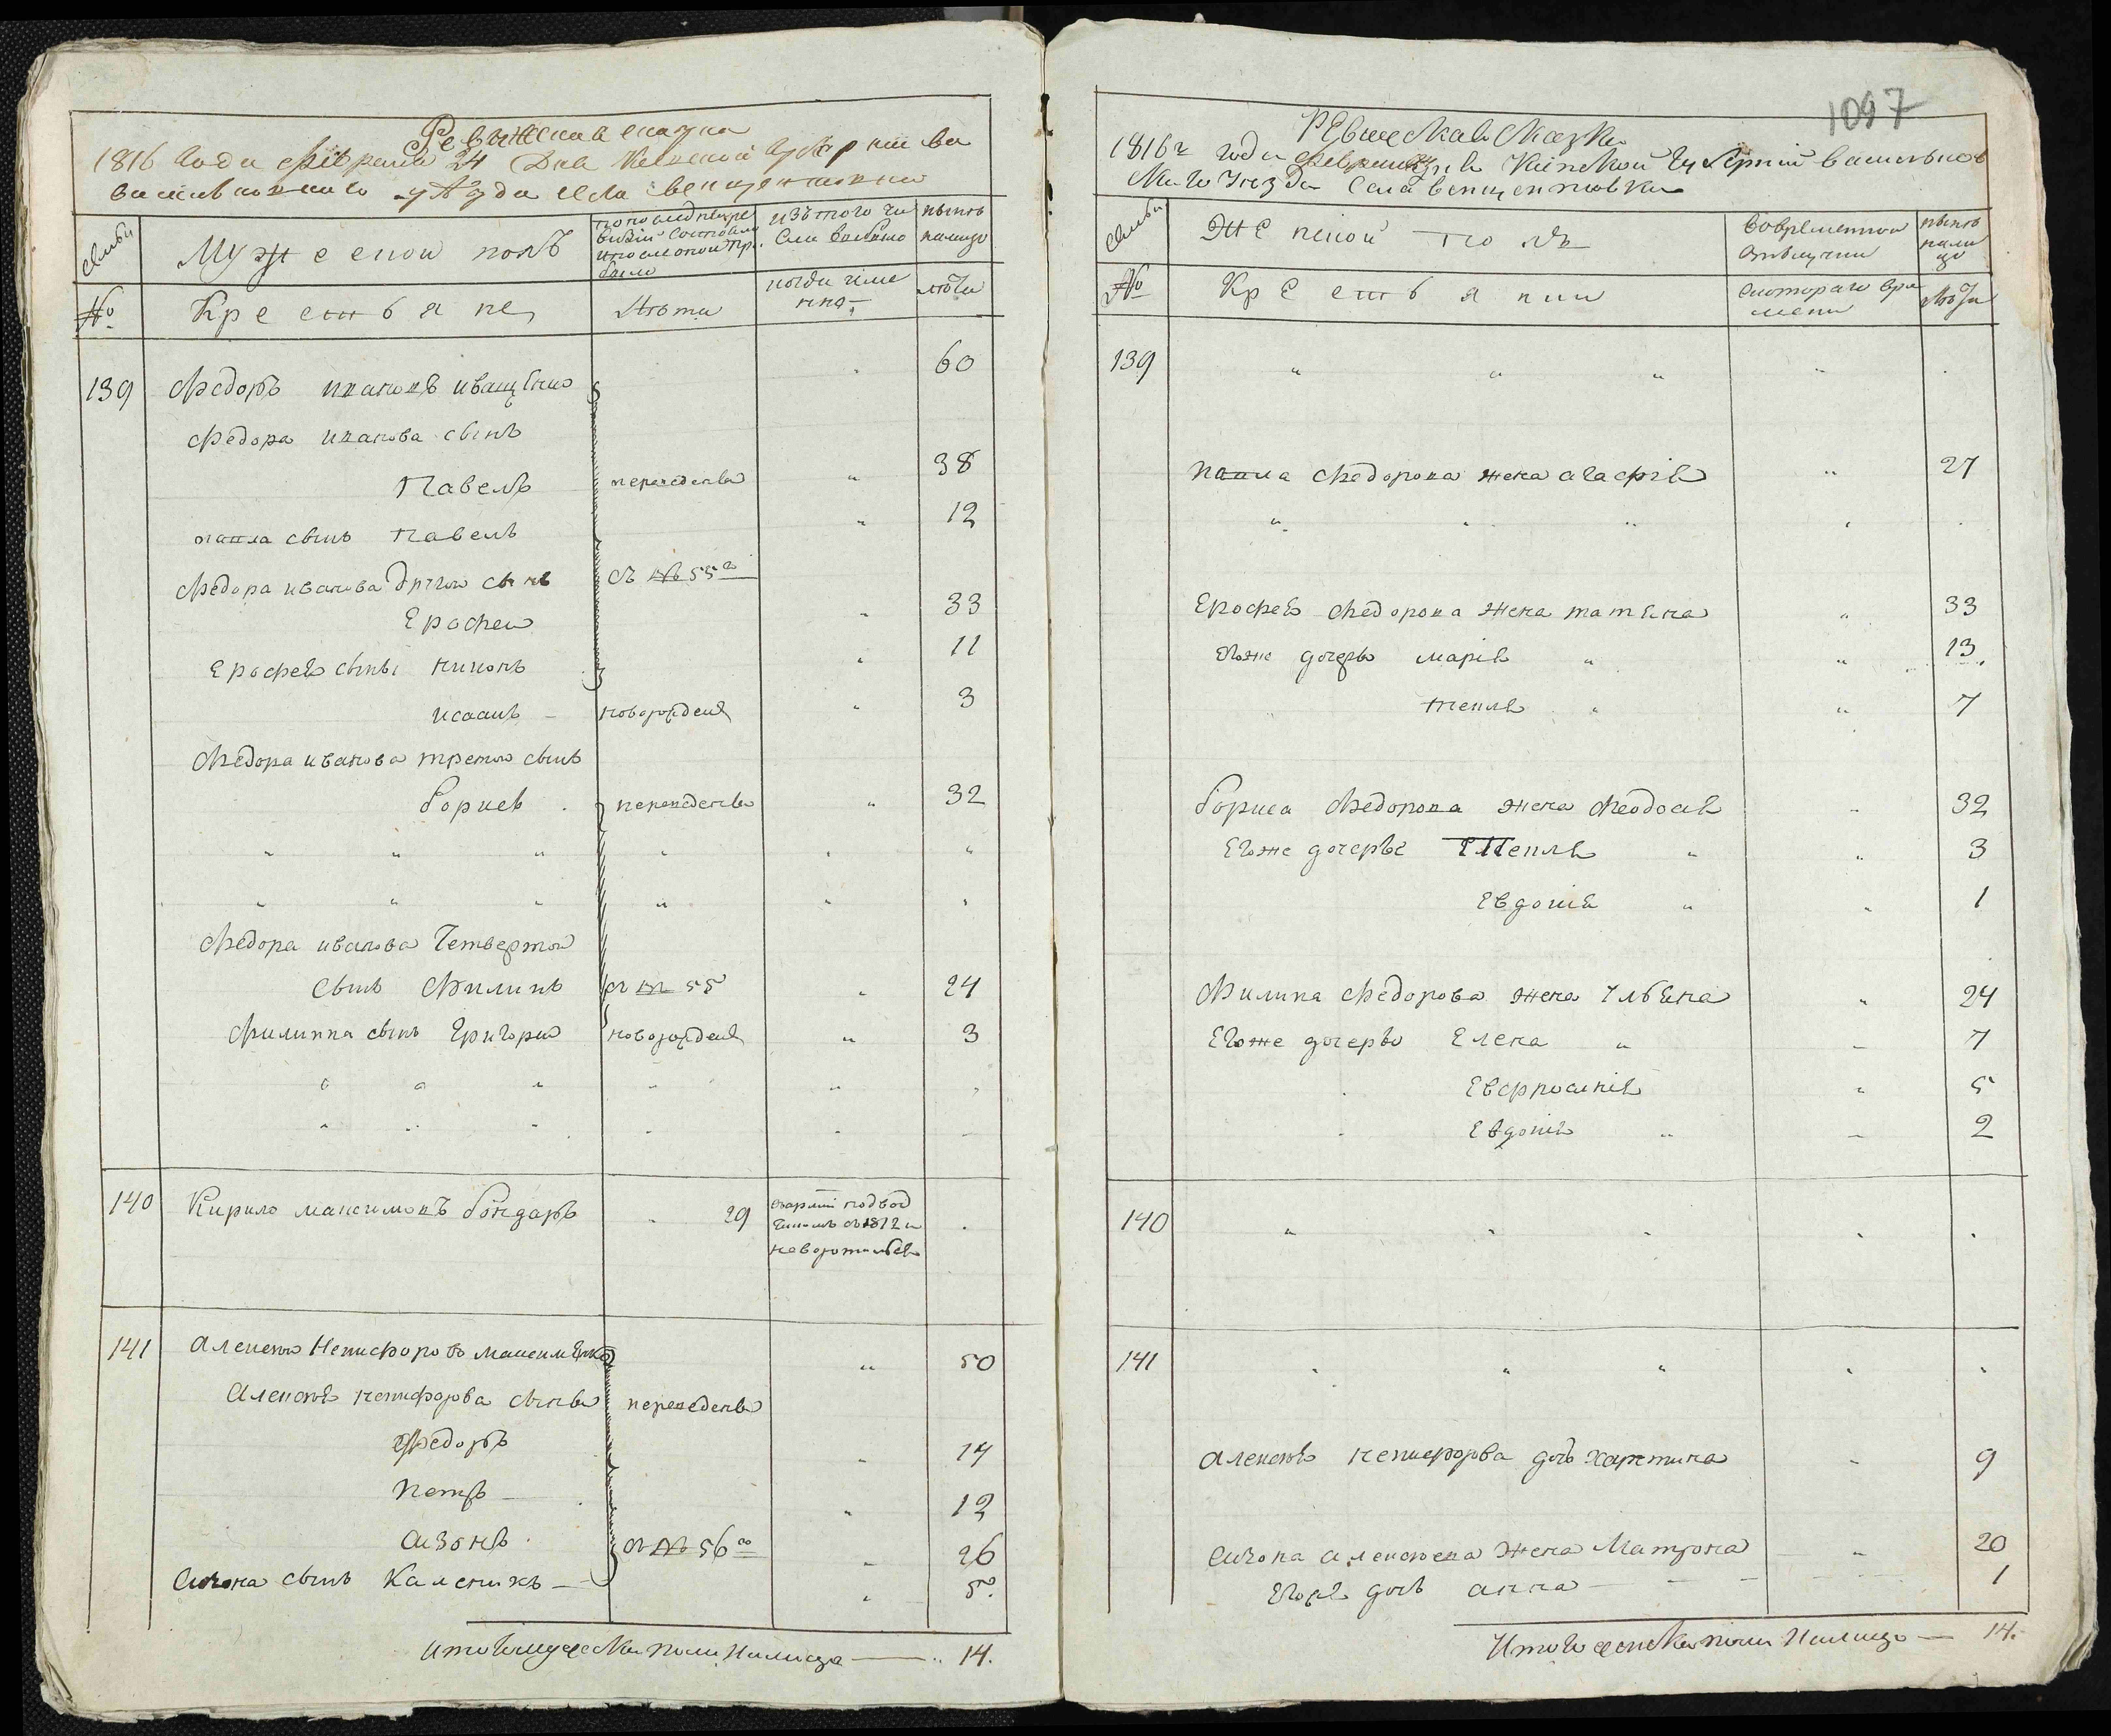 Ревижская сказка
1816 года февраля 24 дня Киевской губернии Ва
сильковского уѣзда села Венцентовки
семьи
Мужеской полъ
по последней ре
визіи состояло
и после оной пр:
было
изъ того чи
сла выбыло
нынѣ
налицо
№
Крестьяне
Лѣта
когда име
нно
лѣта
139 Федоръ Ивановъ Иващенко 60
Федора Иванова сынъ
Павелъ переведены " 38
Павла сынъ Павелъ " 12
Федора Иванова другой сынъ съ № 55го
Ерофей " 33
Ерофея сыны Никонъ " 11
Исаакъ новорожденъ " 3
Федора Иванова третой сынъ
Борисъ переведены " 32
" " " " " "
" " " " " "
Федора Иванова четвертой
сынъ Филипъ съ № 55 " 24
Филиппа сынъ Григорий новорожденъ " 3
" " " " " "
" " " " " "
140 Кирило Максимовъ Бондаръ 29
въ 1812 и
141 Алексей Никифоровъ Максименко " 50
Алексея Никифорова сыны переведены
Федоръ " 14
Петръ " 12
Сизонъ съ № 56го " 26
Сизона сынъ Каленикъ " 5.
Итого мужеска пола налицо — 14.
1097
Ревижская сказка
1816г года февраля дня Киевской губерніи Васильков
скаго уезда села Венцентовки
семьи
Женской полъ
Во временной
отлучки
нынѣ
нали
цо
№
Крестьянки
с котораго вре
мени
Лѣта
139 " " " "
Павла Федорова жена Агафія " 27
" " " " "
Ерофея Федорова жена Татяна " 33
Егоже дочерь Марія " " 13.
Текля " " 7
Бориса Федорова жена Феодосія " 32
Егоже дочерье Текля " " 3
Евдокія " " 1
Филипа Федорова жена Улбяна " 24
Егоже дочерьи Елена " " 7
Евфросинія " 5
Евдокія " " 2
140 " " " " "
141 " " " " "
Алексея Никифорова дочь Харитина " 9
Сизона Алексеева жена Матрона " 20
Егоже дочь Анна 1
Итого женска пола налицо — 14.